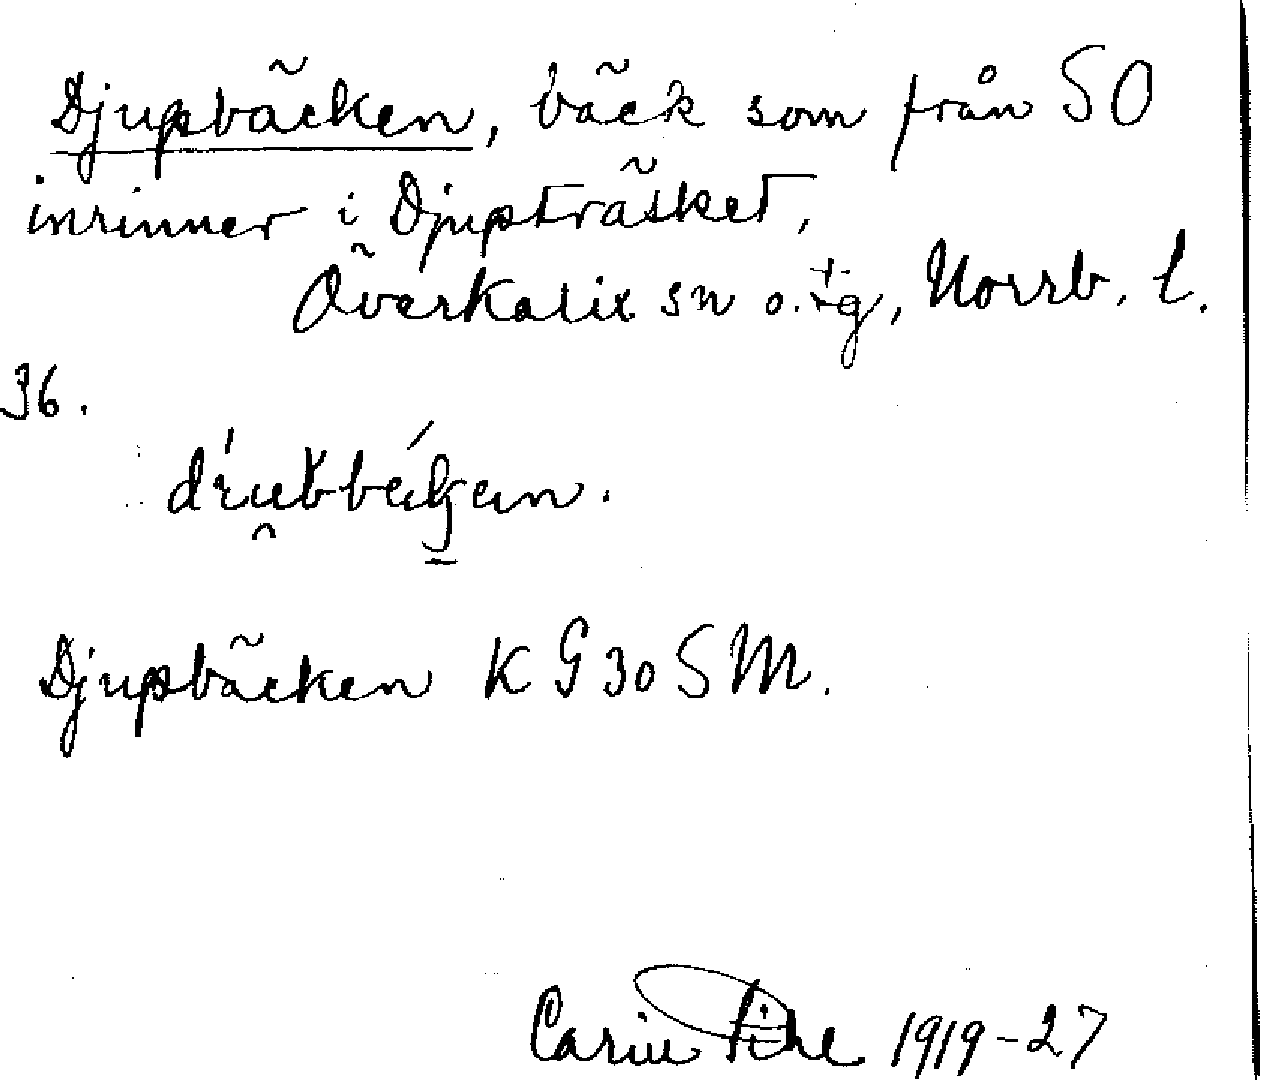 Djupbäcken, bäck som från SO
inrinner i Djupträsket,
Överkalix sn o. tg, Norrb. l.
36.
Djupbäcken KG30SM.
Carin Pihl 1919-27